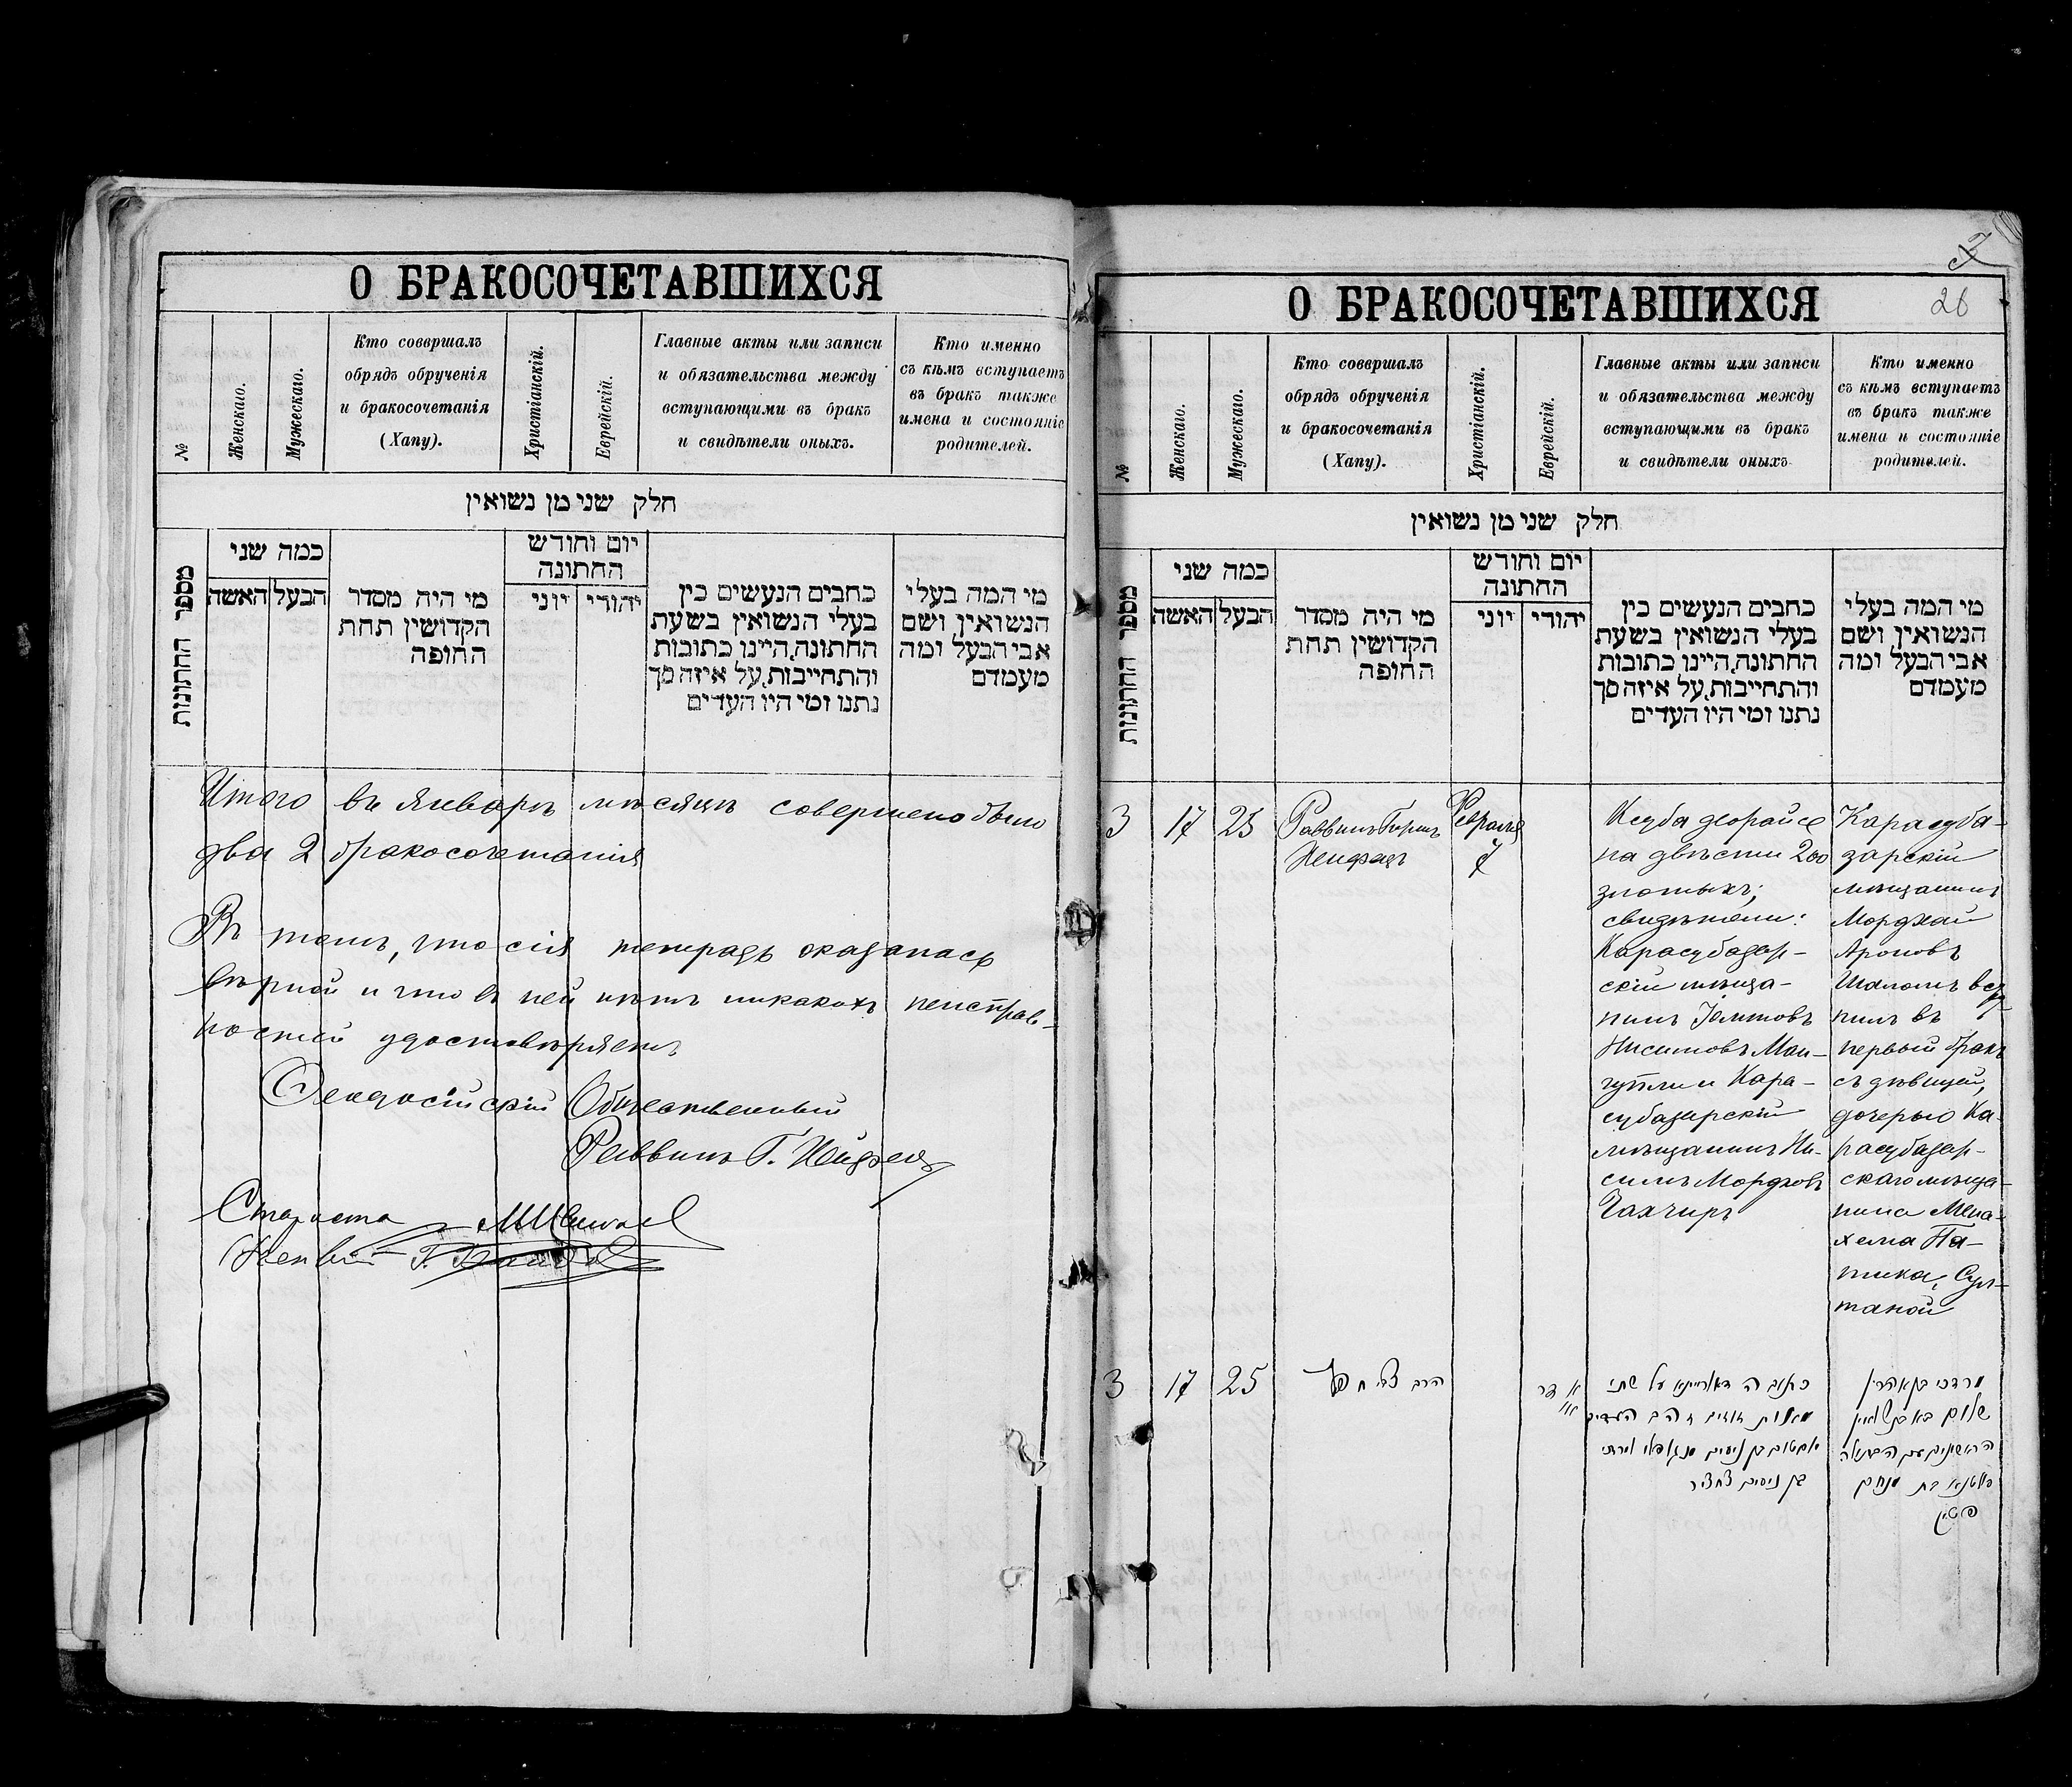 О БРАКОСОЧЕТАВШИХСЯ
№
Женскаго.
Мужескаго.
Кто соввршалъ
обрядъ обрученія
и бракосочетанія
(Хапу).
Христіанскій.
Еврейскій.
Главные акты или записи
и обязательства между
вступающими въ бракъ
и свидѣтели оныхъ.
Кто именно
съ кѣмъ вступаетъ
въ бракъ также
имена и состояніе
родителей.
חלק שני מן נשואין
מספר החתונות
כמה שני
האשה
הבעל
מי היה מסדר
הקדושין תחת
החופה
יום וחודש
החתונה
יוני
יהודי
כתבים הנעשים בין
בעלי הנשואין בשעת
החתונה,היינו כתובות
והתחייבות,על איזה סך
נתנו ומי היו העדים
מי המה בעלי
הנשואין ושם
אבי הבעל ומה
מעמדם
Итого въ Январѣ мѣсяцѣ совершено было
два 2 бракосочетанія
Въ томъ, что сія тетрадь оказалась
вѣрной и что въ ней нѣтъ никакихъ неисправ-
ностей удостовѣряемъ
Ѳеодосійскій Общественный
Раввинъ Г. Нейфелд
Староста
О БРАКОСОЧЕТАВШИХСЯ
26
№
Женскаго.
Мужескаго.
Кто соввршалъ
обрядъ обрученія
и бракосочетанія
(Хапу).
Христіанскій.
Еврейскій.
Главные акты или записи
и обязательства между
вступающими въ бракъ
и свидѣтели оныхъ.
Кто именно
съ кѣмъ вступаетъ
въ бракъ также
имена и состояніе
родителей.
חלק שני מן נשואין
מספר החתונות
כמה שני
האשה
הבעל
מי היה מסדר
הקדושין תחת
החופה
יום וחודש
החתונה
יוני
יהודי
כתבים הנעשים בין
בעלי הנשואין בשעת
החתונה,היינו כתובות
והתחייבות,על איזה סך
נתנו ומי היו העדים
מי המה בעלי
הנשואין ושם
אבי הבעל ומה
מעמדם
3
17
25
Раввинъ Гирш
Февраля
7
Ксуба деорайсе
на двѣсти 200
злотыхъ;
свидѣтели:
Карасубазар-
скій мѣща-
нинъ
Нисимовъ Ман-
гупли и Кара-
субазарскій
мѣщанинъ Ни-
симъ Мордхов
Чахчиръ
Карасуба-
зарскій
мѣщанинъ
Мордхай
Ароновъ
Шаломъ всту-
пилъ въ
первый бракъ
съ дѣвицей,
дочерью Ка-
расубазар-
скаго мѣща-
нина Мена-
хема Па-
тика, Сул-
таной
3
17
25
הרב
אדר
כתובה דאורייתא על שתי
מאות זוזים זהב העדים
בן ניסים
מרדכי בן אהרן
שלום בא בנשואין
הראשונים עם הבתולה
בת מנחם